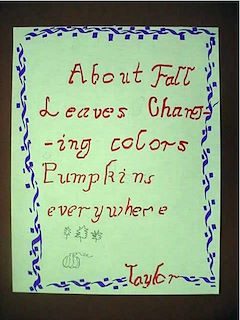 About Fall
Leaves Chang-
-ing colors
Pumpkins
everywhere
Taylor